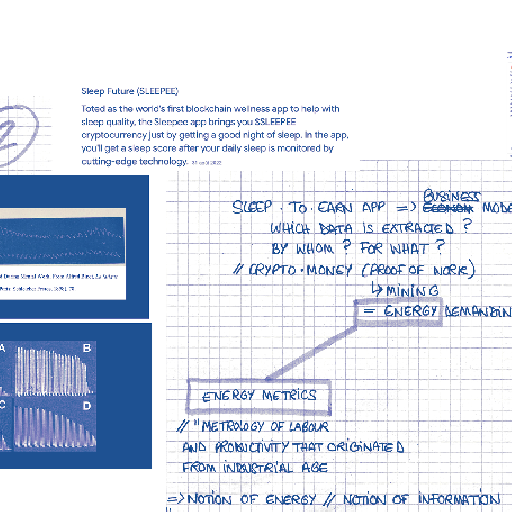 Sleep Future (SLEEPEE)
Toted as the world's first blockchain wellness app to help with
sleep quality, the Sleepee app brings you $SLEEPEE
cryptocurrency just by getting a good night of sleep. In the app,
you'll get a sleep score after your daily sleep is monitored by
cutting-edge technology.
2
BUSINESS
SLEEP . TO . EARN APP => ECONOM MODE
WHICH DATA IS EXTRACTED ?
BY WHOM ? FOR WHAT ?
// CRYPTO-MONEY (PROOF OF WORK)
↳ MINING
= ENERGY DEMANDIN
A B
C D
ENERGY METRICS
// "METROLOGY OF LABOUR
AND PRODUCTIVITY THAT ORIGINATED
FROM INDUSTRIAL AGE
=> NOTION OF ENERGY // NOTION OF INFORMATION